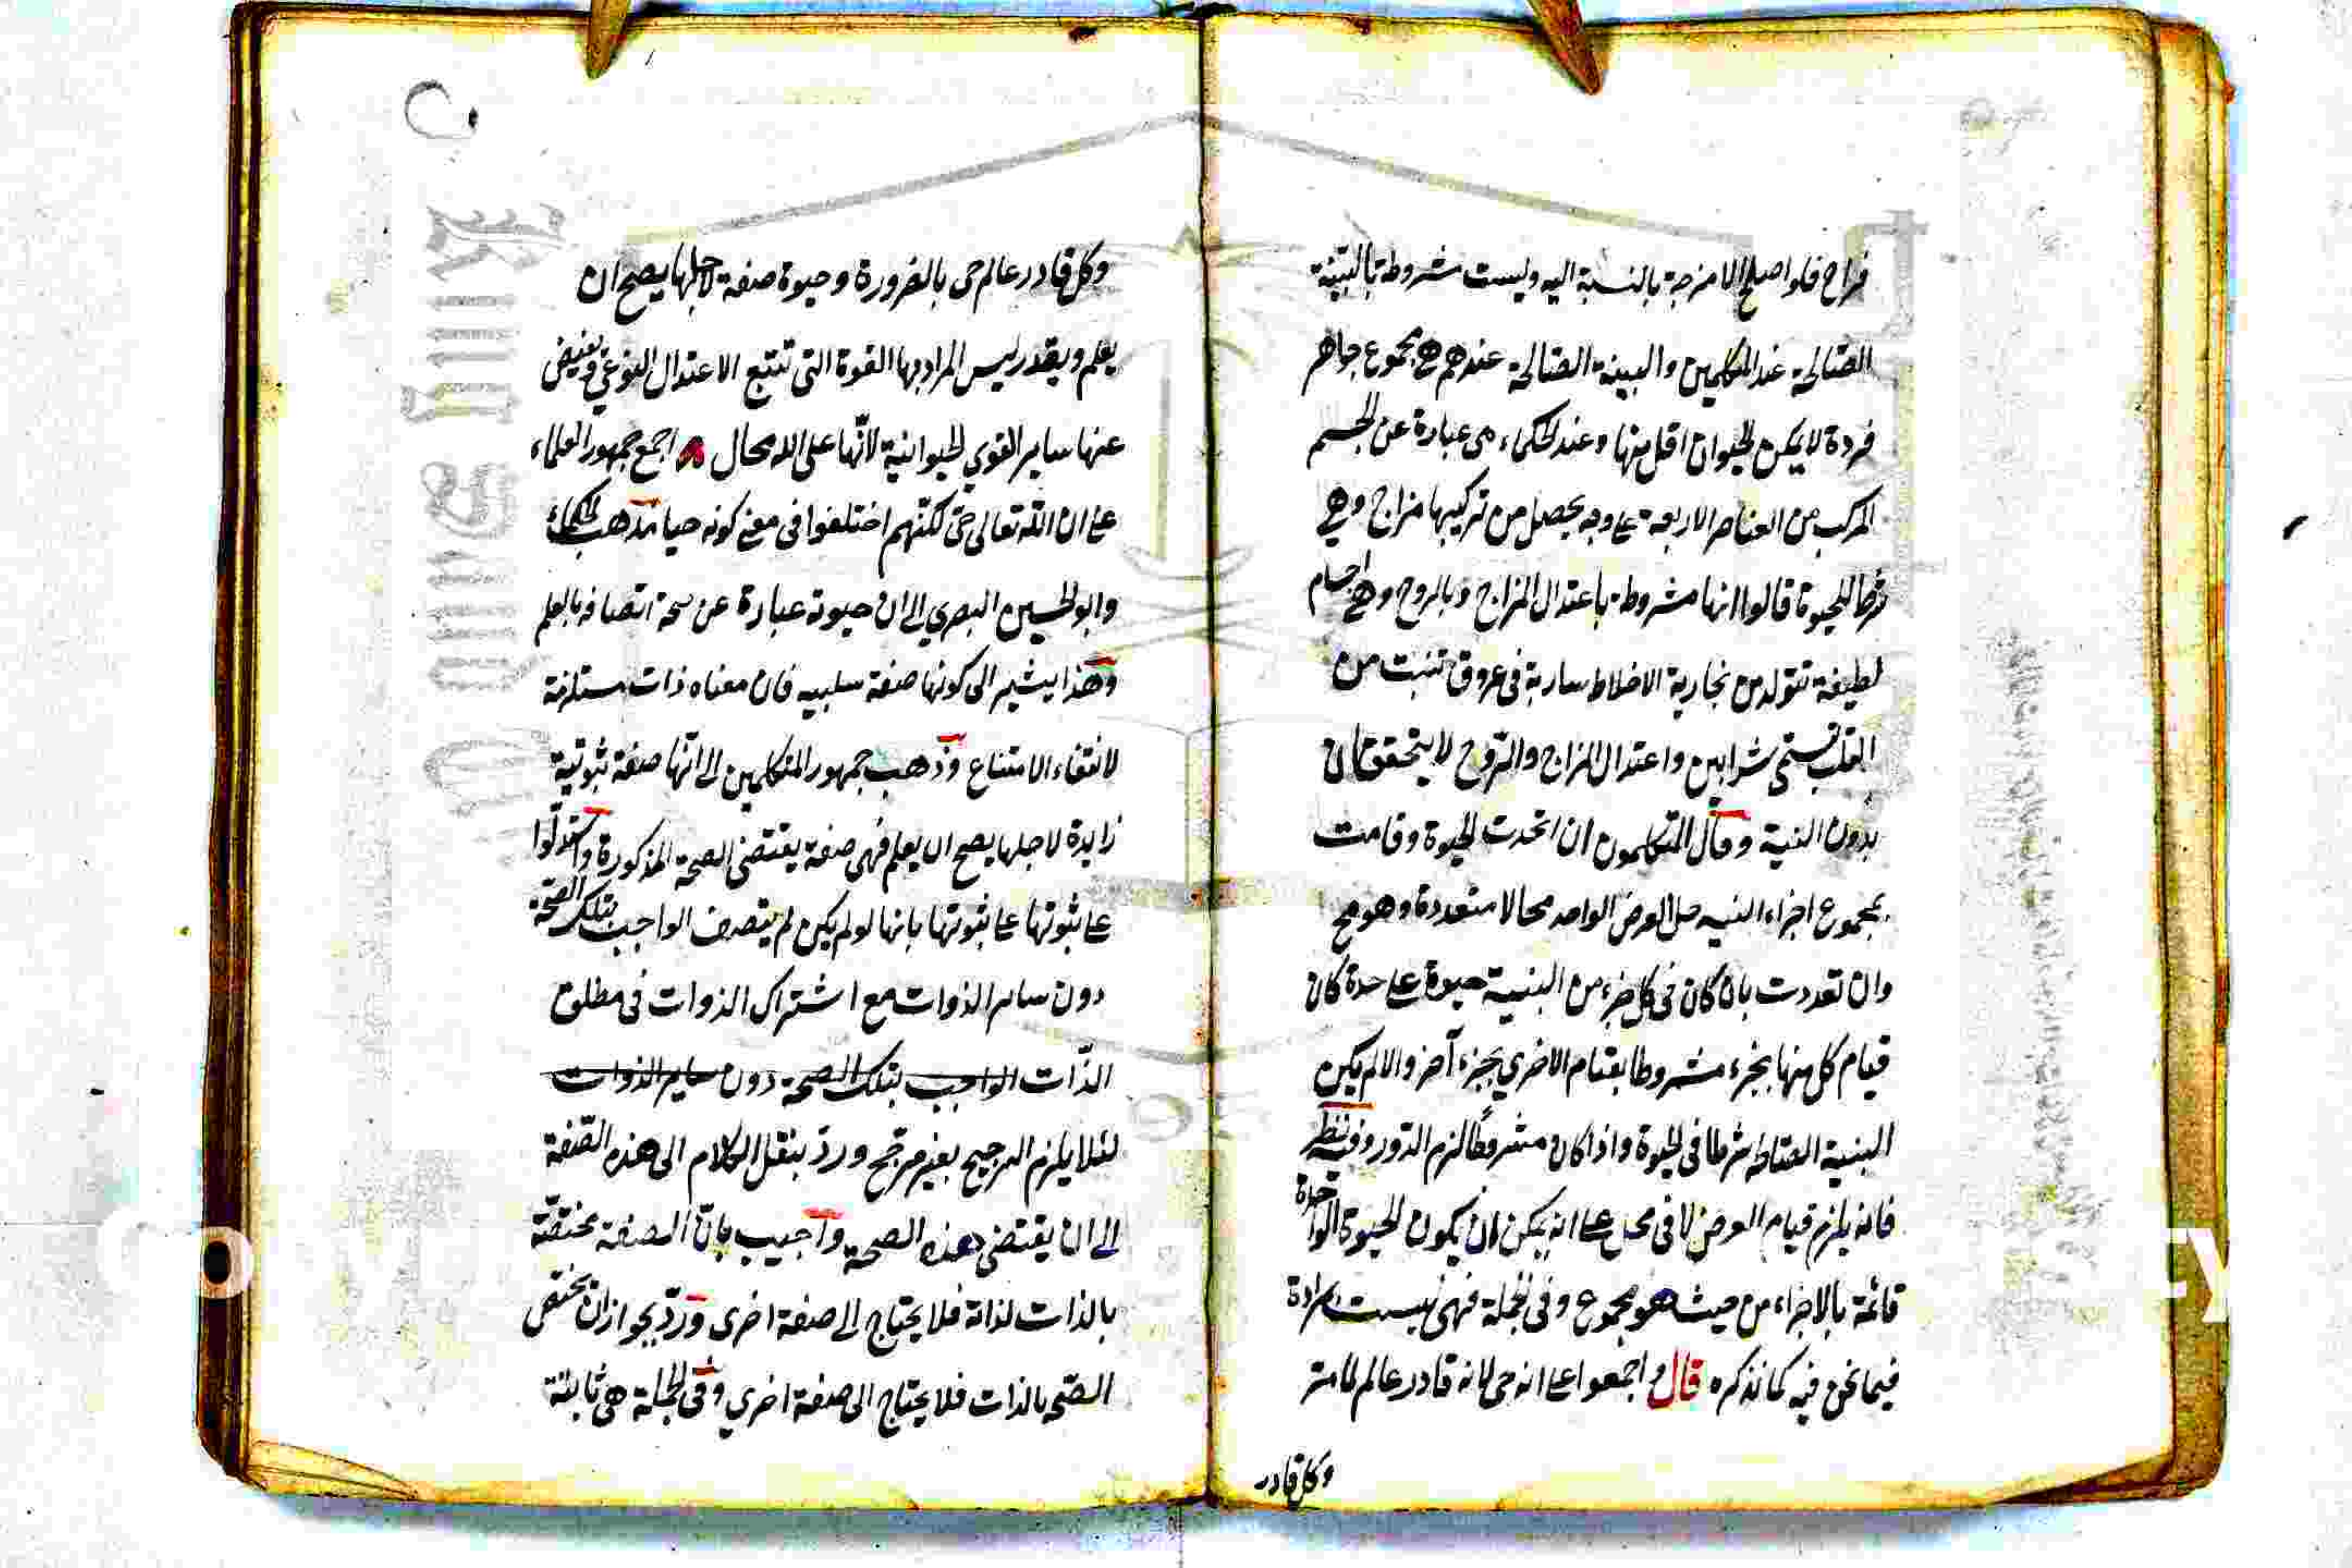 فراح فلو اصلح الامزجة بالنسبة اليه وليست مشروطة بالبنية
الصالحة عند المتكلمين والبينة الصالحة عندهم هي مجموع جواهر
فردة لا يمكن الحيوان اقل منها وعند الحكماء هي عبارة عن الجسم
المركب من العناصر الاربعة على وجه يحصل من تركيبها مزاج وهي
شرط للحيوة قالوا انها مشروطة باعتدال المزاج وبالروح وهي اجسام
لطيفة تتولد من بخارية الاخلاط سارية في عروق تنبت من
القلب تسمى شرايين واعتدال المزاج والروح لا يتحققان
بدون البنية وقال المتكلمون ان اتحدت الحيوة وقامت
بمجموع اجزاء البنيه حل العرض الواحد محالا متعددة وهو مح
وان تعددت بان كان في كل جزء من البنية حيوة على حدة كان
قيام كل منها بجزء مشروطا بقيام الاخري بجزء آخر والا لم يكن
البنية الصالحة شرطا في الحيوة واذا كان مشروطا لزم الدور وفيه نظر
فانه يلزم قيام العرض لا في محل على انه يمكن ان يكون الحيوة الواحدة
قائمة بالاجزاء من حيث هو مجموع وفي الجملة فهي ليست مرادة
فيما نحن فيه كما نذكره قال واجمعوا على انه حي لانه قادر عالم لما مر
وكل قادر
وكل قادر عالم حي بالضرورة وحيوة صفة لاجلها يصح ان
يعلم ويقدر ليس المراد بها القوة التي تتبع الاعتدال النوعي ويفيض
عنها ساير القوي الحيوانية لانّها على الله محال اجمع جمهور العلماء
على ان الله تعالى حيّ لكنّهم اختلفوا في معنى كونه حيا مذهب الحكماء
وابو الحسين البصري الى ان حيوته عبارة عن صحة اتصافه بالعلم
وهذا يشير الى كونها صفة سلبيه فان معناه ذات مستلزمة
لانتفاء الامتناع وذهب جمهور المتكلمين الى انّها صفة ثبوتية
زايدة لاجلها يصح ان يعلم فهي صفة يقتضي الصحة المذكورة واستدلّوا
على ثبوتها على ثبوتها بانها لو لم يكن لم يتصف الواجب بتلك الصحّة
دون ساير الذوات مع اشتراك الذوات في مطلق
الذّات الواجب بتلك الصحة دون ساير الذوات
لئلا يلزم الترجيح بغير مرجح وردّ بنقل الكلام الى هذه الصّفة
الى ان يقتضي هذه الصحة واجيب بانّ الصفة مختصّة
بالذات لذاته فلا يحتاج الى صفة اخرى وردّ بجواز ان يختص
الصّحة بالذات فلا يحتاج الى صفة اخري وفي الجملة هي ثابتة